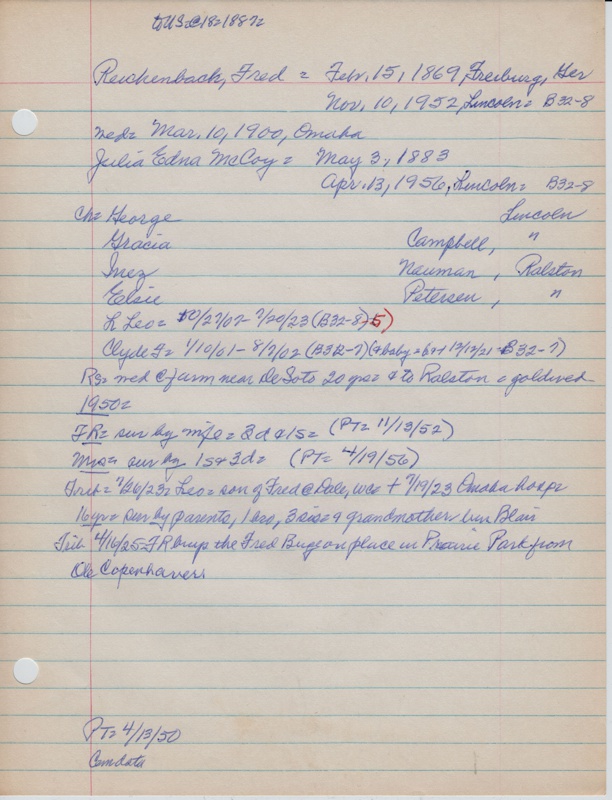 to US @ 18 = 1887
Reichenback, Fred = Febr. 15, 1869, Freiburg, Ger
Nov. 10, 1952, Lincoln = B32-8
med = Mar. 10, 1900, Omaha
Julia Edna McCoy = May 3, 1883
Apr. 13, 1956, Lincoln = B32-8
Ch = George Lincoln
Gracia Campbell, "
Inez Neuman, Ralston
Elsie Petersen, "
L Leo = 10/27/07 - 7/20/23 (B32-8) 5)
Clyde F = 1/10/01 - 8/7/02 (B32-7) (& baby = b&+ 12/12/21 = B32-7)
Rs = med @ farm near DeSoto 20 yrs = & to Ralston = gold wed
1950 =
FR = sur by wife = 3d & 1s = (PT = 11/13/52)
Mrs = sur by 1s & 3d = (PT = 4/19/56)
Trib = 7/26/23 = Leo = son of Fred @ Dale, was + 7/19/23 Omaha hosp =
16 yr = sur by parents, 1 bro, 3 sis & grandmother bur Blair
Trib 4/16/25 = FR buys the Fred place in Prairie Park from
Ole Copenhaver
PT = 4/13/50
Cem data